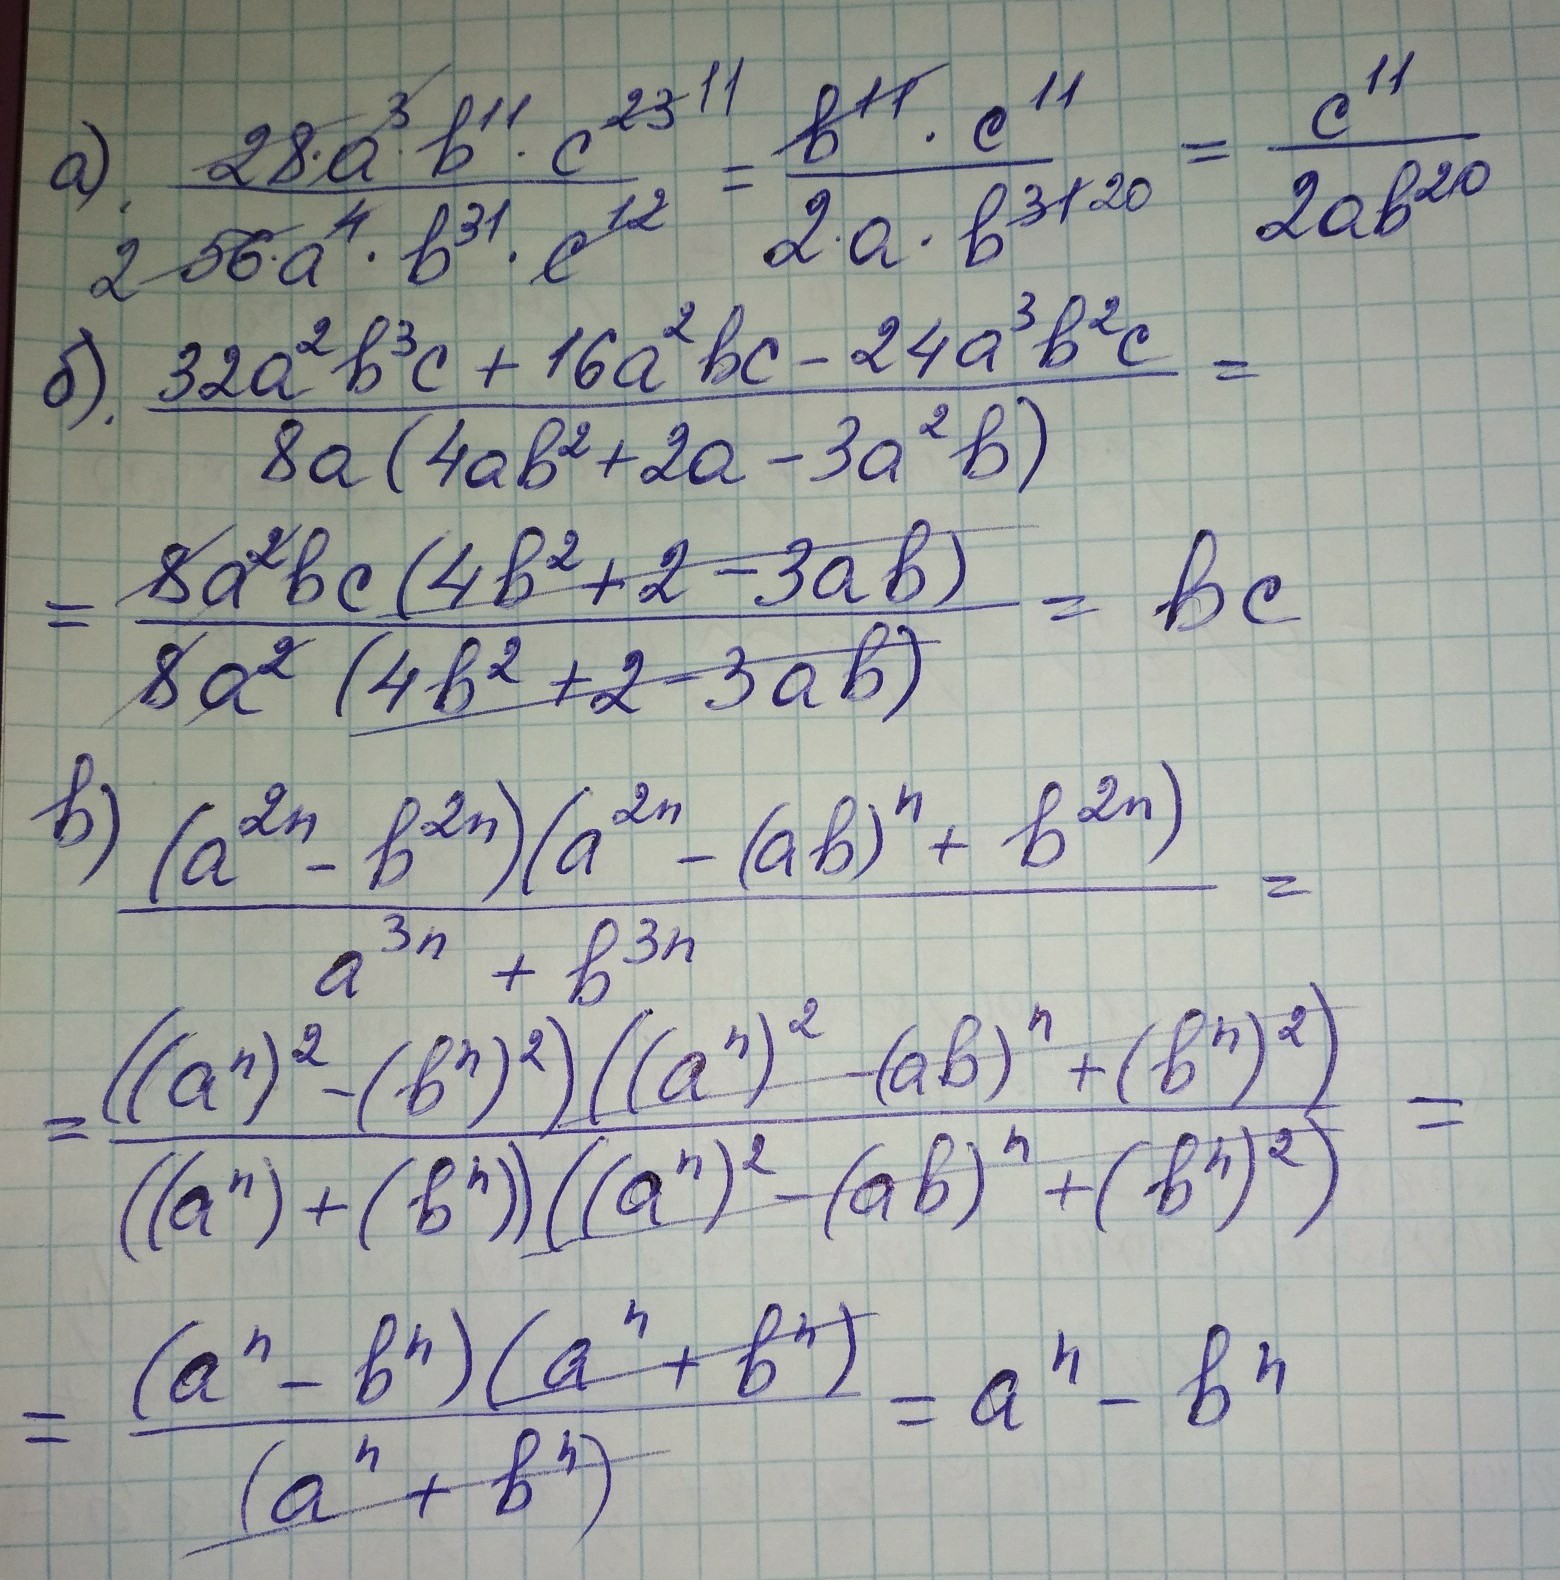 а). 28·a³·b¹¹·c²³ ¹¹ / 2 56·a⁴·b³¹·c¹² = b¹¹·c¹¹ / 2·a·b³¹ ²⁰ = c¹¹ / 2ab²⁰
б). 32a²b³c + 16a²bc - 24a³b²c / 8a(4ab² + 2a - 3a²b) =
= 8a²bc(4b² + 2 - 3ab) / 8a²(4b² + 2 - 3ab) = bc
в) (a²ⁿ - b²ⁿ)(a²ⁿ - (ab)ⁿ + b²ⁿ) / a³ⁿ + b³ⁿ =
= ((aⁿ)² - (bⁿ)²)((aⁿ)² - (ab)ⁿ + (bⁿ)²) / ((aⁿ) + (bⁿ))((aⁿ)² - (ab)ⁿ + (bⁿ)²) =
= (aⁿ - bⁿ)(aⁿ + bⁿ) / (aⁿ + bⁿ) = aⁿ - bⁿ